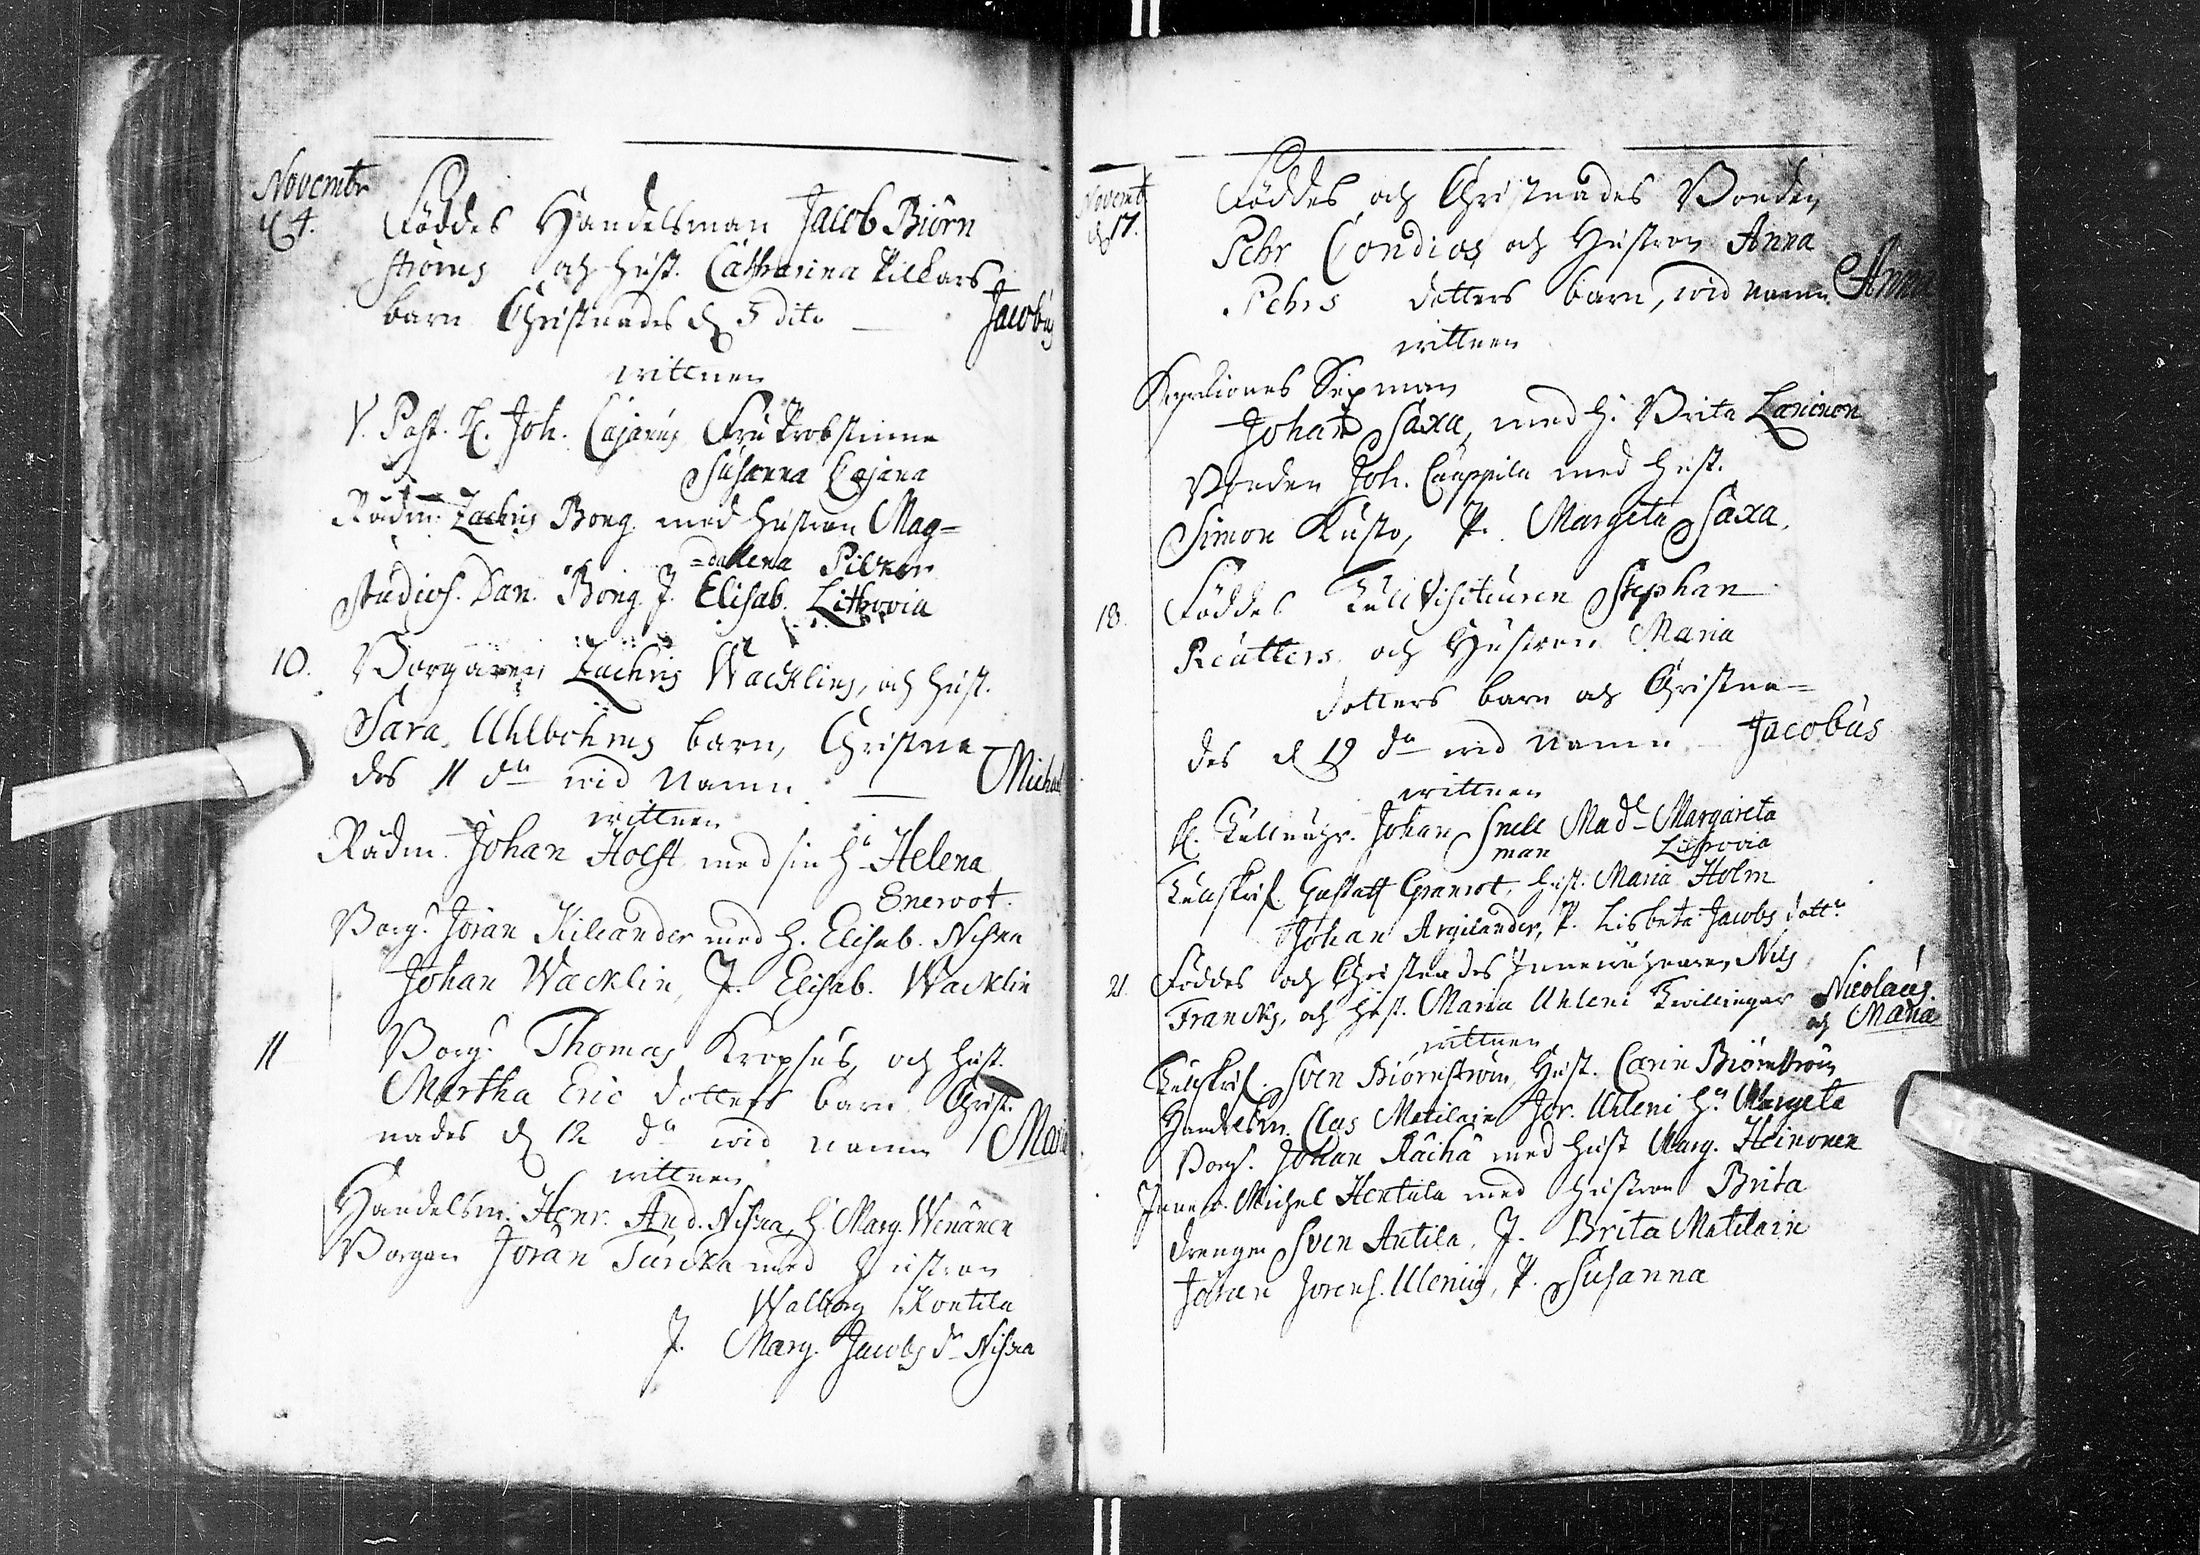 Novembr
d 4. Föddes Handelsman Jacob Biörn
ströms och hust. Catharina Pilkars
barn Christnades d 5 dito — Jacobus
wittnen
V. Past. H. Joh. Cajanus Fru Probstinna
Susanna Cajana
Rådm. Zachris Bong med hustron Mag=
=dalena Pilkar
Studios. Dan. Bong J. Elisab. Lithovia
10. Borgaren Zachris Wacklins, och hust.
Sara Uhlbohms barn, Christna
des 11 do wid namn — Michael
wittnen
Rådm. Johan Holst med sin hu Helena
Enewot.
Borg. Jöran Kileander med h. Elisab. Niska
Johan Wacklin, J. Elisab. Wacklin
11 Borg. Thomas Kropsus och hust.
Martha Eric dotters barn Christ
nades d 12 do wid namn Maria
wittnen
Handelsm. Henr. And. Niska, h. Marg. Wenänen
Borgar Jöran Turcka med hustron
Walborg Kontila
J. Marg. Jacobs dr Niska
Novemb
d 17. Föddes och Christnades Bonden
Pehr Condios och Hustron Anna
Pehrs dotters barn, wid namn Anna
wittnen
Kyrkiones Sexman
Johan Saxa, med h. Brita Laninen
Bonden Joh. Cauppila med hust.
Simon Kusto, P. Margeta Saxa.
18. Föddes Tullvisiteuren Stephan
Reutters och Hustron Maria
dotters barn och Christna=
des d 19 do wid namn — Jacobus
wittnen
H. Tullnär. Johan Snell Mad. Margareta
man Lithovia
Tullskrif. Gustaff Granrot, hust. Maria Holm
Johan Argilander, P. Lisbeta Jacobs dottr
21. Föddes och Christnades Innewånaren Nils
Francks, och hust. Maria Uhleni Twillingar Nicolaus
och Maria
wittnen
Tullskrif. Sven Biörnström, Hust. Carin Biörnström
Handelsm. Clas Matilain Jör. Uhleni hu Margeta
Borg. Johan Räihä med hust Marg. Heinonen
Innew. Michel Hentula med hustron Brita
drengen Sven Antila, J. Brita Matilain
Johan Jörens. Ulenius, P. Susanna